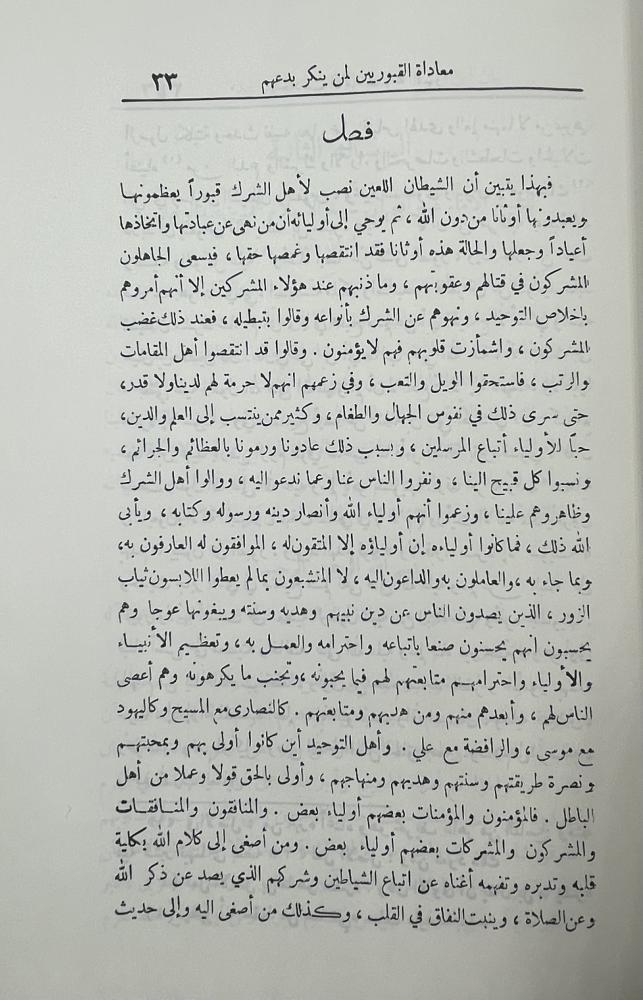 معاداة القبوريين لمن ينكر بدعهم ٣٣
فصل
فبهذا يتبين أن الشيطان اللعين نصب لأهل الشرك قبوراً يعظمونها
ويعبدونها أوثانا من دون الله ، ثم يوحي إلى أوليائه أن من نهى عن عبادتها واتخاذها
أعياداً وجعلها والحالة هذه أوثانا فقد انتقصها وغمصها حقها ، فيسعى الجاهلون
المشركون في قتالهم وعقوبتهم ، وما ذنبهم عند هؤلاء المشركين إلا أنهم أمروهم
باخلاص التوحيد ، ونهوهم عن الشرك بأنواعه وقالوا بتبطيله ، فعند ذلك غضب
المشركون ، واشمأزت قلوبهم فهم لا يؤمنون . وقالوا قد انتقصوا أهل المقامات
والرتب ، فاستحقوا الويل والتعب ، وفي زعمهم انهم لا حرمة لهم لدينا ولا قدر،
حتى سرى ذلك في نفوس الجهال والطغام ، وكثير ممن ينتسب إلى العلم والدين،
حباً للأولياء أتباع المرسلين ، وبسبب ذلك عادونا ورمونا بالعظائم والجرائم ،
ونسبوا كل قبيح الينا ، ونفروا الناس عنا وعما ندعو اليه ، ووالوا أهل الشرك
وظاهروهم علينا ، وزعموا أنهم أولياء الله وأنصار دينه ورسوله وكتابه ، ويأبى
الله ذلك ، فما كانوا أولياءه إن أولياؤه إلا المتقون له ، الموافقون له العارفون به،
وبما جاء به ، والعاملون به والداعون اليه ، لا المتشبعون بمالم يعطوا اللابسون ثياب
الزور ، الذين يصدون الناس عن دين نبيهم وهديه وسنته ويبغونها عوجا وهم
يحسبون انهم يحسنون صنعا باتباعه واحترامه والعمل به ، وتعظيم الأنبياء
والأولياء واحترامهم متابعتهم لهم فيما يحبونه ،وتجنب ما يكرهونه وهم أعصى
الناس لهم ، وأبعدهم منهم ومن هديهم ومتابعتهم . كالنصارى مع المسيح وكاليهود
مع موسى ، والرافضة مع علي . وأهل التوحيد أين كانوا أولى بهم وبمحبتهم
ونصرة طريقتهم وسنتهم وهديهم ومنهاجهم ، وأولى بالحق قولا وعملا من أهل
الباطل . فالمؤمنون والمؤمنات بعضهم أولياء بعض . والمنافقون والمنافقات
والمشركون والمشركات بعضهم أولياء بعض . ومن أصغى إلى كلام الله بكلية
قلبه وتدبره وتفهمه أغناه عن اتباع الشياطين وشركهم الذي يصد عن ذكر الله
وعن الصلاة ، وينبت النفاق في القلب ، وكذلك من أصغى اليه وإلى حديث